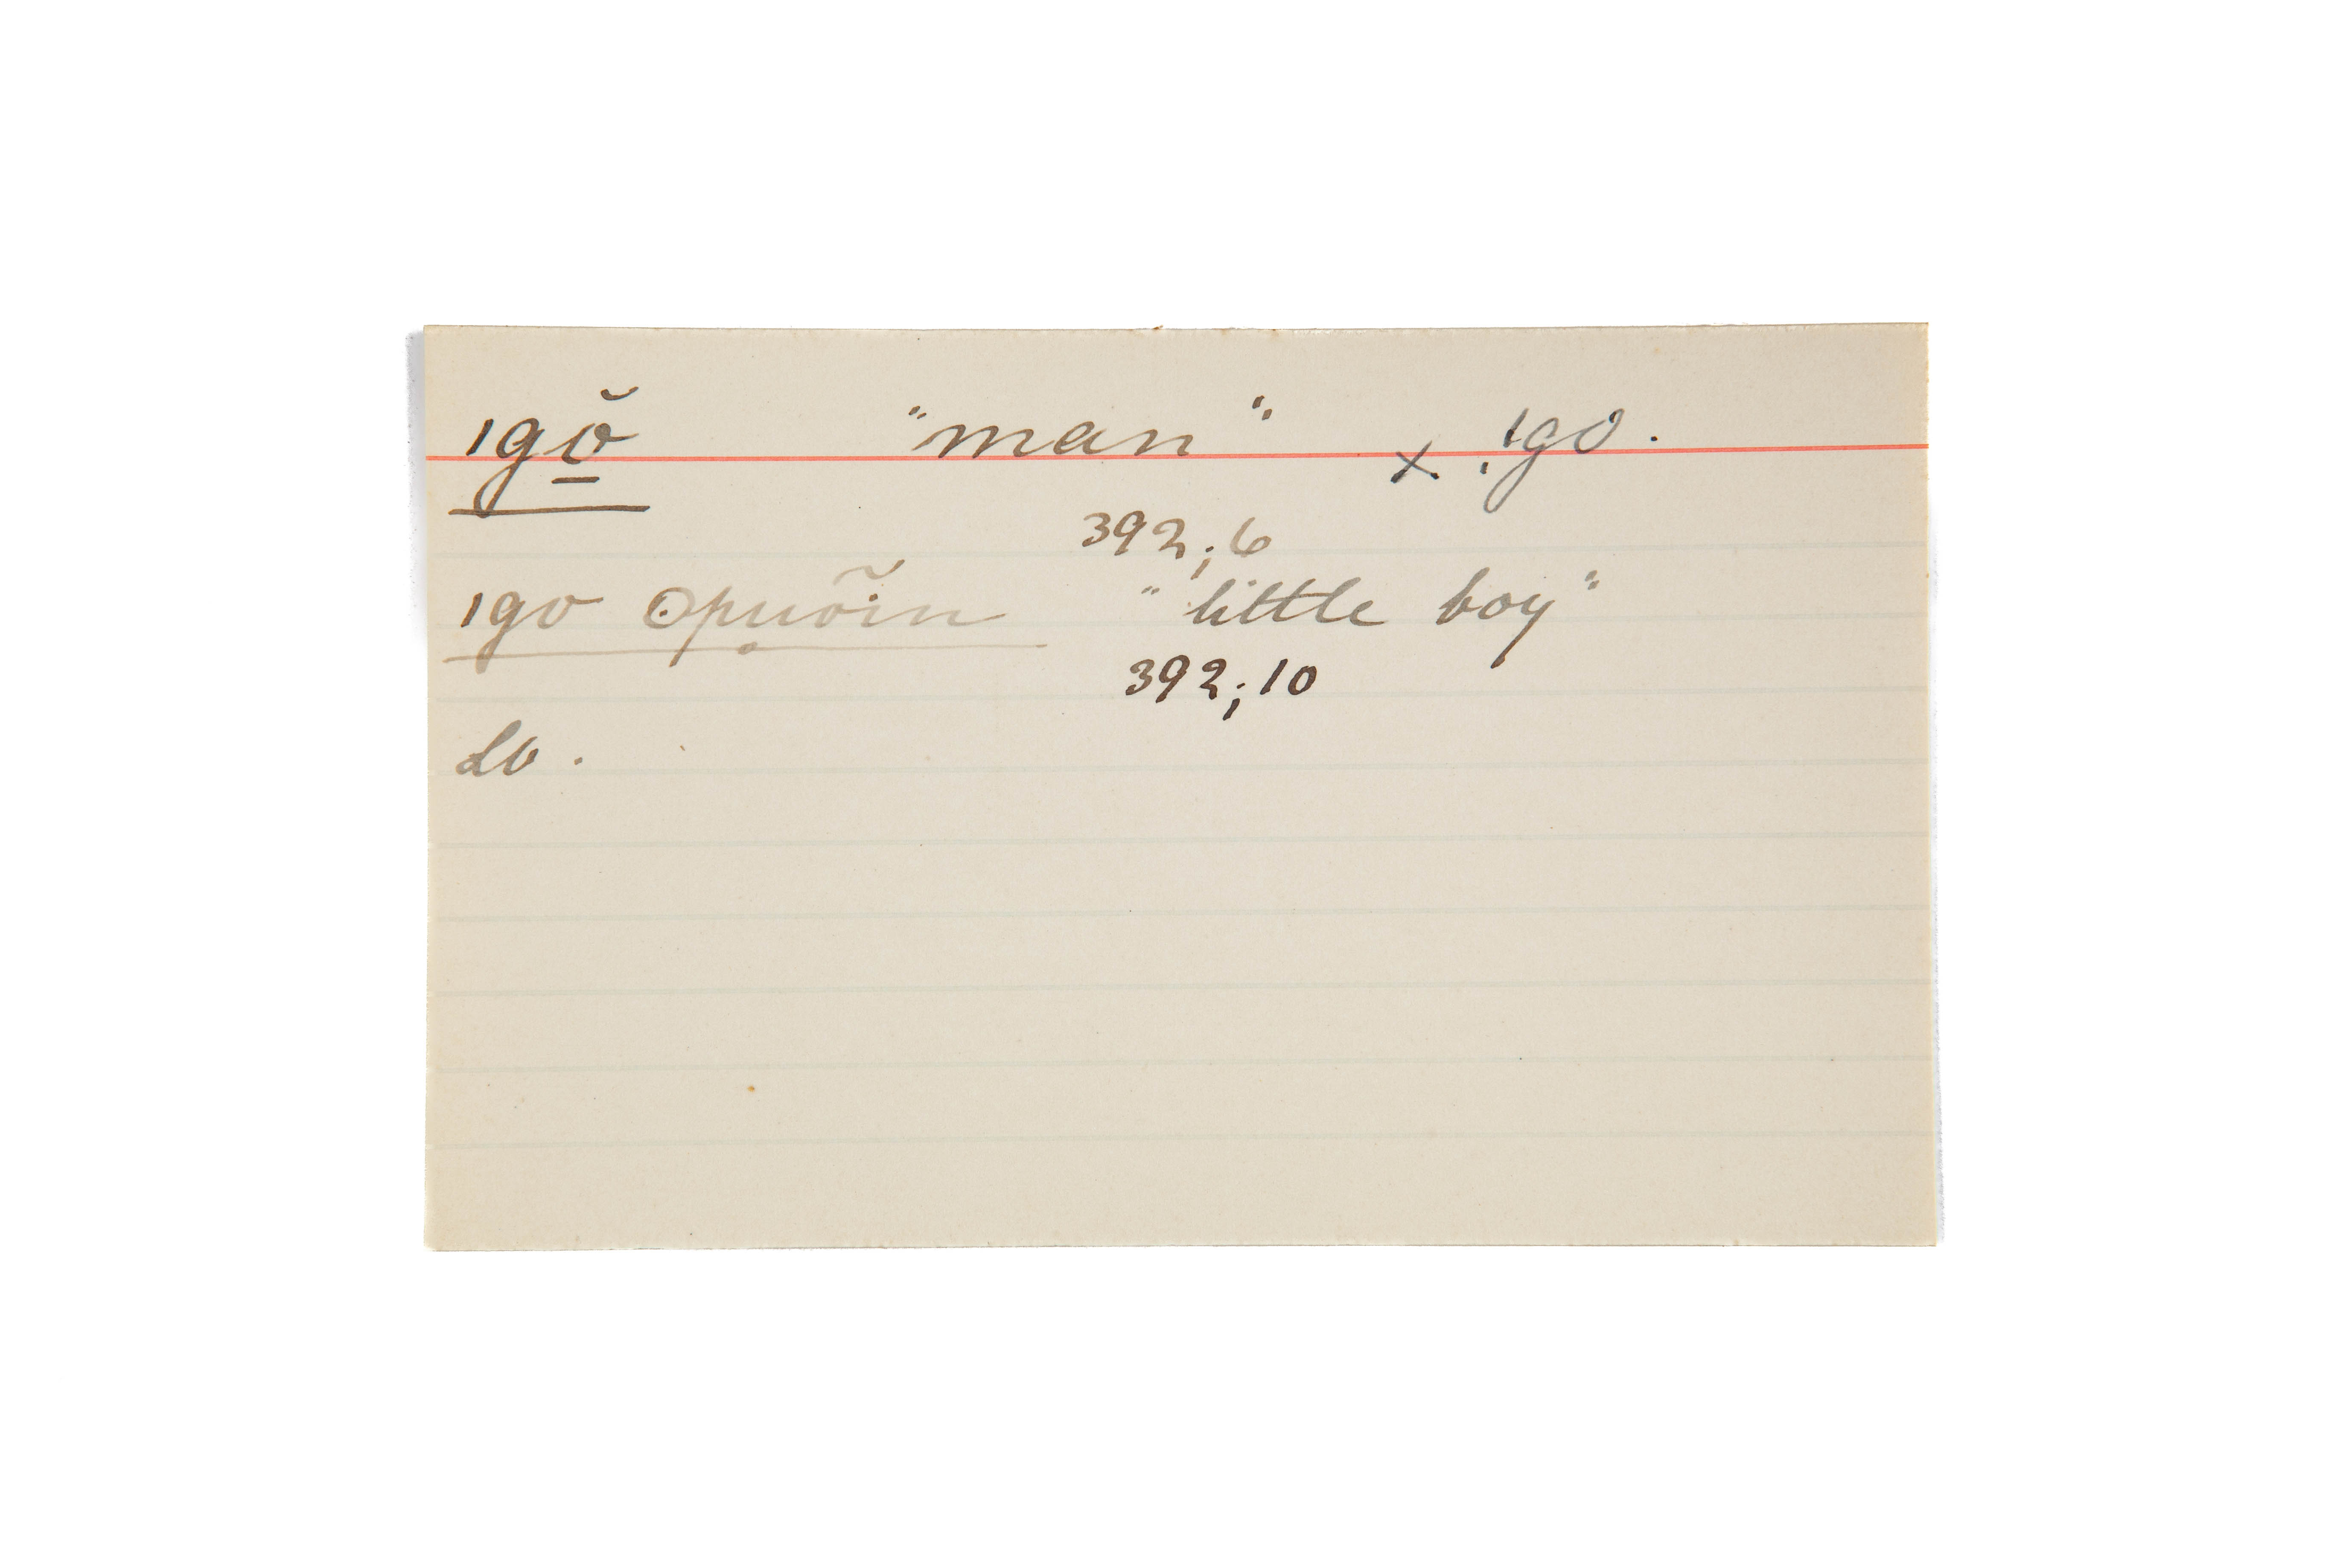 ıgŏ̱ "man" × !go.
392; 6
ıgo ʘpu̥õin "little boy"
392; 10
Lb.